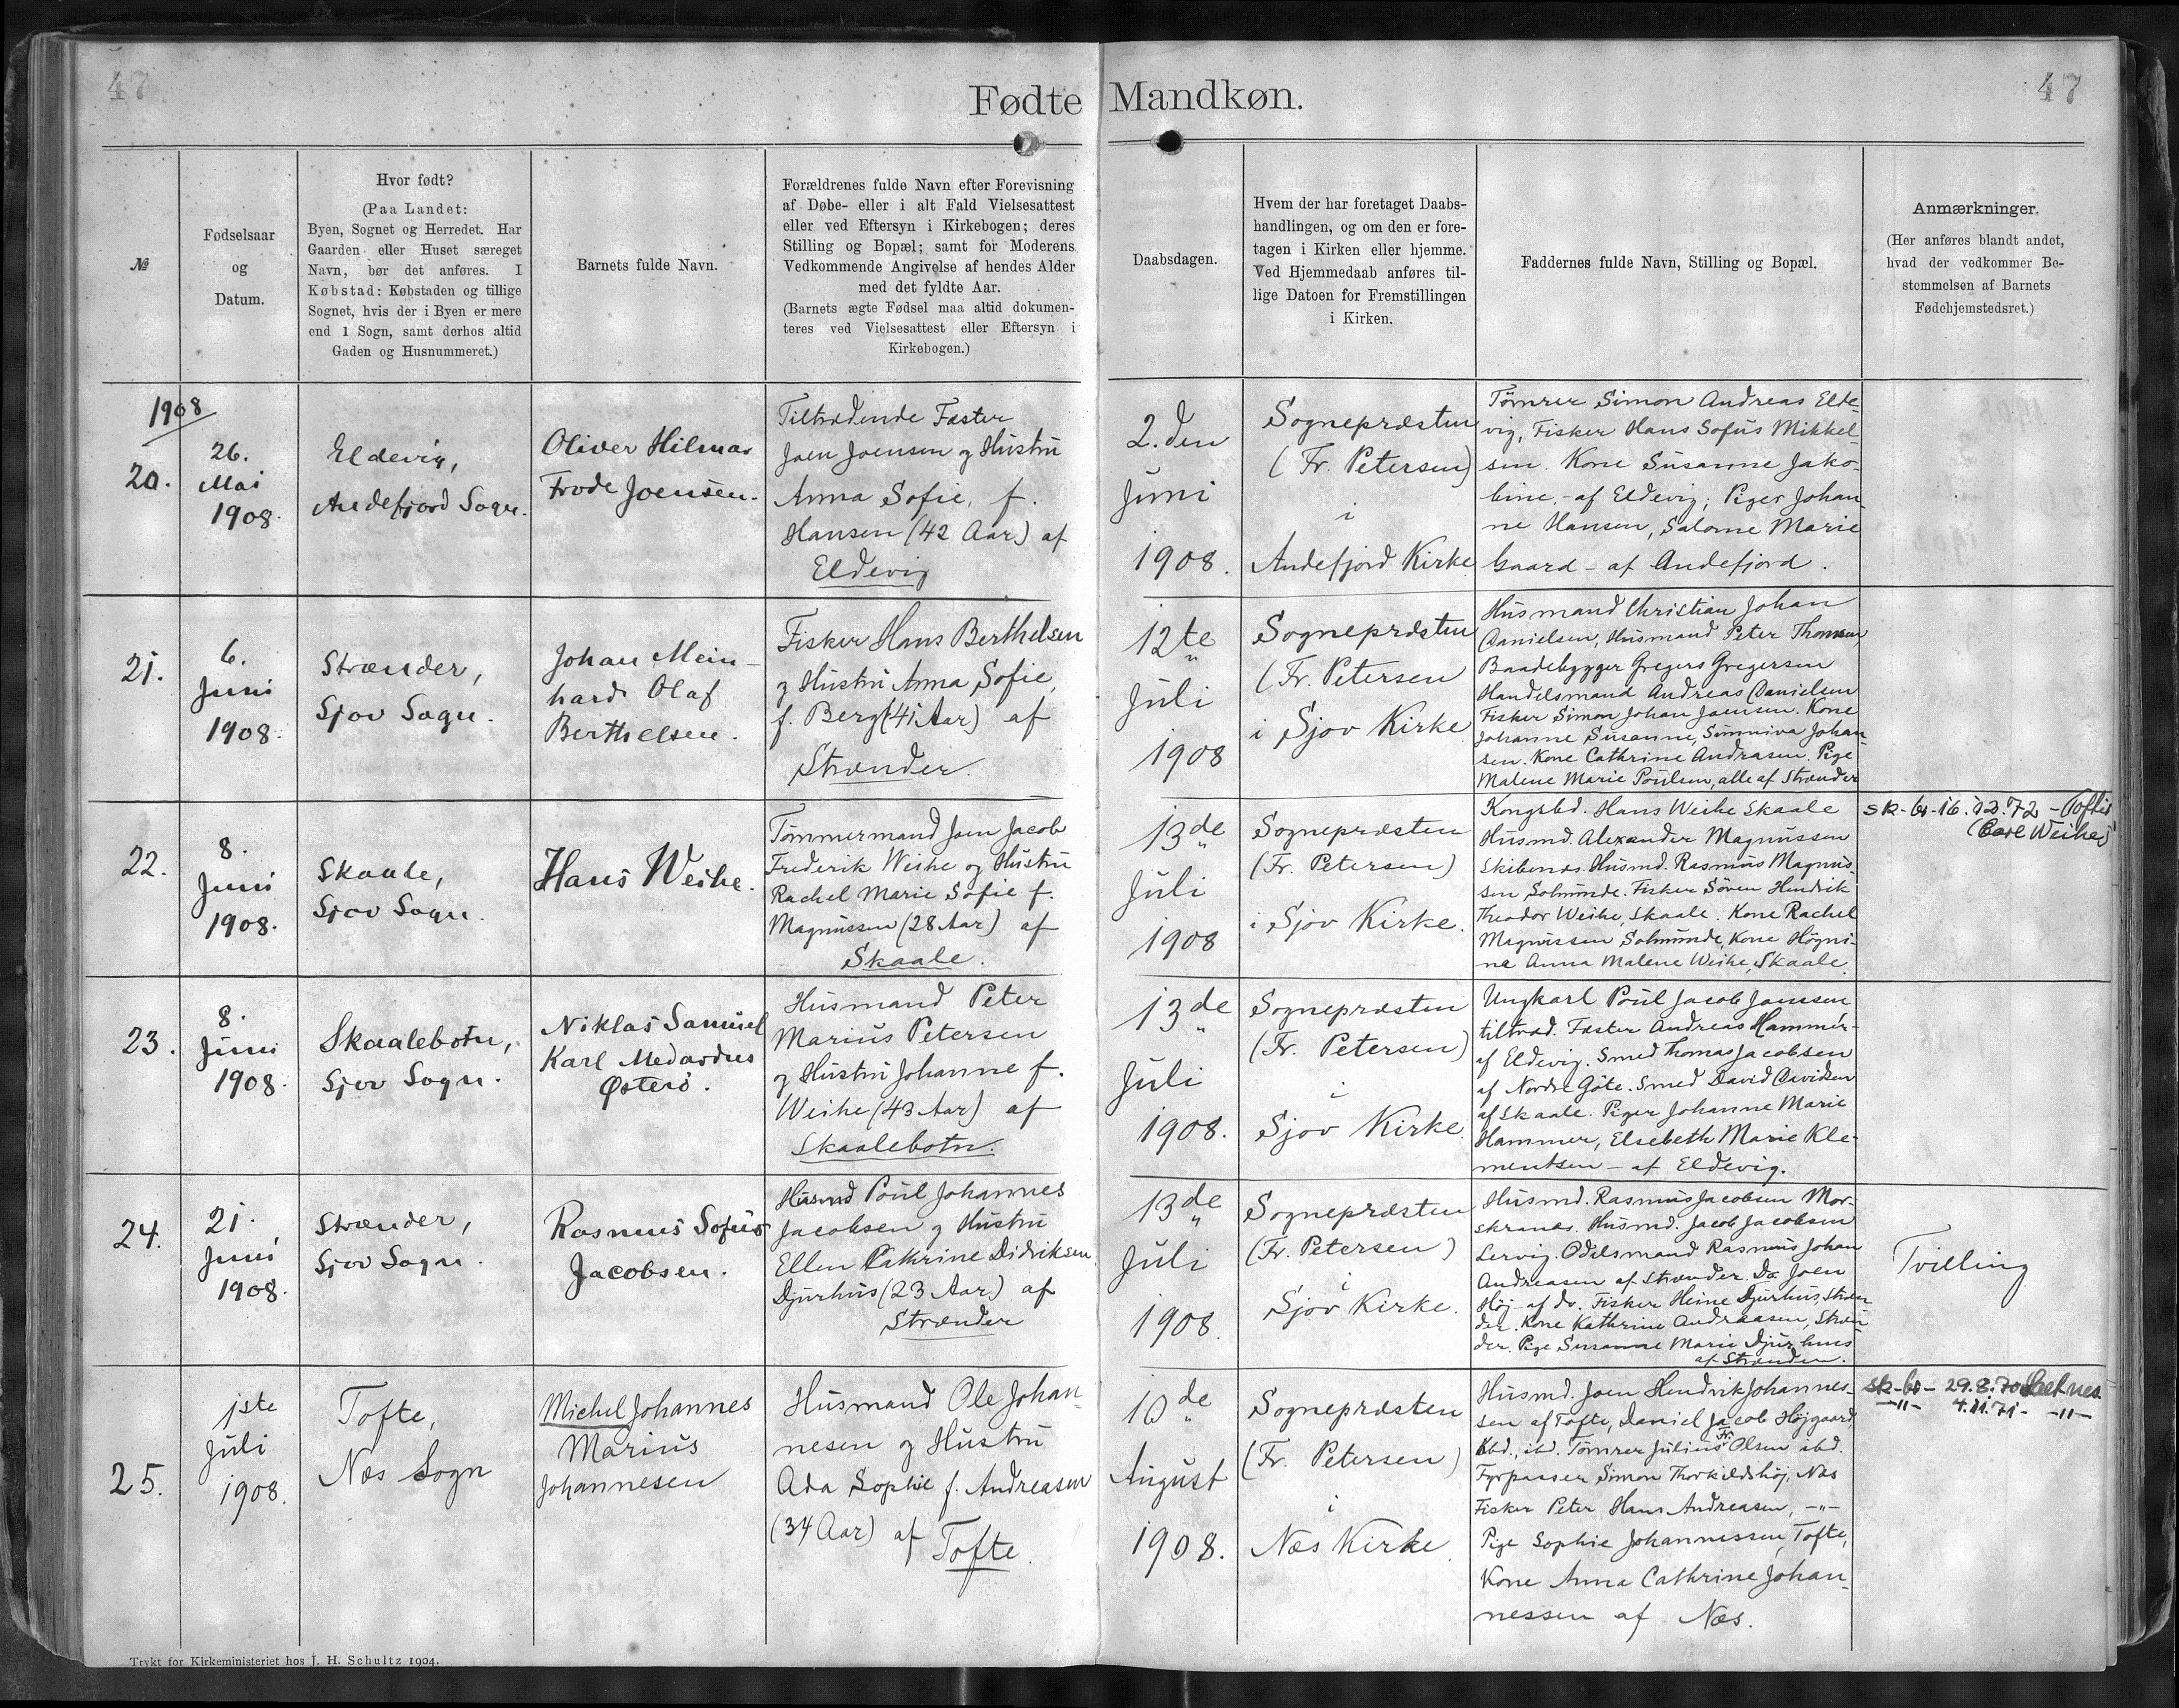 47
47
Fødte Mandkøn.
№
Fødselsaar
og
Datum.
Hvor født?
(Paa Landet:
Byen, Sognet og Herredet. Har
Gaarden eller Huset særeget
Navn, bør det anføres. I
Købstad: Købstaden og tillige
Sognet, hvis der i Byen er mere
end 1 Sogn, samt derhos altid
Gaden og Husnummeret.)
Barnets fulde Navn.
Forældrenes fulde Navn efter Forevisning
af Døbe- eller i alt Fald Vielsesattest
eller ved Eftersyn i Kirkebogen; deres
Stilling og Bopæl; samt for Moderens
Vedkommende Angivelse af hendes Alder
med det fyldte Aar.
(Barnets ægte Fødsel maa altid dokumen-
teres ved Vielsesattest eller Eftersyn i
Kirkebogen.)
Daabsdagen.
Hvem der har foretaget Daabs-
handlingen, og om den er fore-
tagen i Kirken eller hjemme.
Ved Hjemmedaab anføres til-
lige Datoen for Fremstillingen
i Kirken.
Faddernes fulde Navn, Stilling og Bopæl.
Anmærkninger.
(Her anføres blandt andet,
hvad der vedkommer Be-
stemmelsen af Barnets
Fødehjemstedsret.)
1908
20.
26.
Mai
1908.
Eldevig,
Andefjord Sogn.
Oliver Hilmar
Frode Joensen.
Tiltrædende Fæster
Joen Joensen og Hustru
Anna Sofie, f.
Hansen (42 Aar) af
Eldevig
2.den
Juni
1908.
Sognepræsten
(Fr. Petersen)
i
Andefjord Kirke
Tømrer Simon Andreas Elde-
vig, Fisker Hans Sofus Mikkel-
sen. Kone Susanne Jako-
bine, - af Eldevig; Piger Johan-
ne Hansen, Salome Marie
Gaard - af Andefjord.
21.
6.
Juni
1908.
Strænder,
Sjov Sogn.
Johan Mein-
hard Olaf
Berthelsen.
Fisker Hans Berthelsen
og Hustru Anna Sofie,
f. Berg (41 Aar) af
Strænder.
12te
Juli
1908
Sognepræsten
(Fr. Petersen
i Sjov Kirke
Husmand Christian Johan
Danielsen, Husmand Peter Thomsen,
Baadebygger Gregers Gregersen
Handelsmand Andreas Danielsen
Fisker Simon Johan Joensen. Kone
Johanne Susanne, Sunniva Johan-
sen. Kone Cathrine Andreasen. Pige
Malene Marie Poulsen, alle af Strænder
22.
8.
Juni
1908.
Skaale,
Sjov Sogn.
Hans Weihe.
Tømmermand Joen Jacob
Frederik Weihe og Hustru
Rachel Marie Sofie f.
Magnussen (28 Aar) af
Skaale.
13de
Juli
1908
Sognepræsten
(Fr. Petersen)
i Sjov Kirke.
Kongsbd. Hans Weihe Skaale
Husmd. Alexander Magnussen
Skibenæs. Husmd. Rasmus Magnus-
sen Solmunde. Fisker Søren Hendrik
Theodor Weihe, Skaale. Kone Rachel
Magnussen Solmunde, Kone Høgni-
na Anna Malene Weihe, Skaale.
sk-br-16.12.72 - Toftir
(Carl Weihe)
23.
8.
Juni
1908.
Skaalebotn,
Sjov Sogn.
Niklas Samuel
Karl Medardus
Østerø.
Husmand Peter
Marius Petersen
og Hustru Johanne f.
Weihe (43 Aar) af
Skaalebotn.
13de
Juli
1908.
Sognepræsten
(Fr. Petersen)
i
Sjov Kirke.
Ungkarl Poul Jacob Joensen
tiltræd. Fæster Andreas Hammer-
af Eldevig. Smed Thomas Jacobsen
af Nordre Gøte. Smed David Davidsen
af Skaale. Piger Johanne Marie
Hammer, Elsebeth Marie Kle-
mentsen - af Eldevig.
24.
21.
Juni
1908.
Strænder,
Sjov Sogn.
Rasmus Sofus
Jacobsen.
Husmd Poul Johannes
Jacobsen og Hustru
Ellen Cathrine Didriksen
Djurhus (23 Aar) af
Strænder
13de
Juli
1908.
Sognepræsten
(Fr. Petersen)
i
Sjov Kirke.
Husmd. Rasmus Jacobsen Mor-
skranes. Husmd. Jacob Jacobsen
Lervig. Odelsmand Rasmus Johan
Andreasen af Strænder. Do Joen
Høj - af do. Fisker Heine Djurhus, Stræn-
der. Kone Kathrine Andreasen, Stræn-
der. Pige Susanne Marie Djurhus
af Strænder.
Tvilling
25.
1ste
Juli
1908.
Tofte,
Næs Sogn
Michel Johannes
Marius
Johannesen
Husmand Ole Johan-
nesen og Hustru
Ada Sophie f. Andreasen
(34 Aar) af Tofte.
10de
August
1908.
Sognepræsten
(Fr. Petersen)
i
Næs Kirke.
Husmd. Joen Hendrik Johannes-
sen af Tofte, Daniel Jacob Højgaard,
Kbd., ibd. Tømrer Julius Fr. Olsen ibd.
Fyrpasser Simon Thorkildshøj, Næs
Fisker Peter Hans Andreasen, -"-
Pige Sophie Johannessen, Tofte,
Kone Anna Cathrine Johan-
nessen af Næs.
sk-br- 29.8.70 Saltnes
-"- 4.11.71- -"-
Trykt for Kirkeministeriet hos J. H. Schultz 1904.